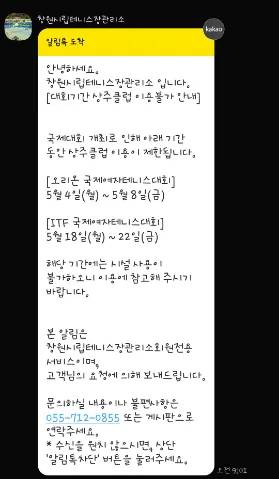 창원시립테니스장관리소
kakao
알림톡 도착
안녕하세요.
창원시립테니스장관리소 입니다.
[대회기간 상주클럽 이용불가 안내]
국제대회 개최로 인해 아래 기간
동안 상주클럽 이용이 제한됩니다.
[오리온 국제여자테니스대회]
5월 4일(월) ~ 5월 8일(금)
[ITF 국제여자테니스대회]
5월 18일(월) ~ 22일(금)
해당 기간에는 시설 사용이
불가하오니 이용에 참고해 주시기
바랍니다.
본 알림은
창원시립테니스장관리소회원전용
서비스이며,
고객님의 요청에 의해 보내드립니다.
문의하실 내용이나 불편사항은
055-712-0855 또는 게시판으로
연락주세요.
* 수신을 원치 않으시면, 상단
'알림톡차단' 버튼을 눌러주세요.
오전 9:01